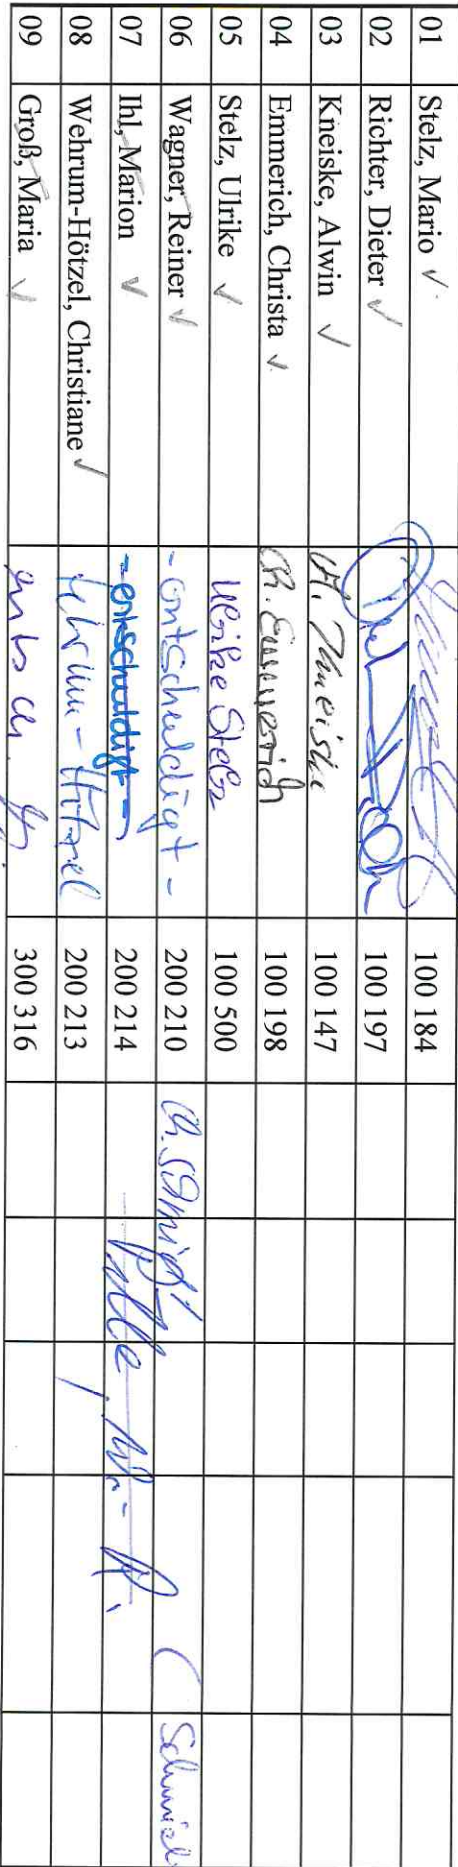 01 Stelz, Mario ✓ 100 184
02 Richter, Dieter ✓ 100 197
03 Kneiske, Alwin ✓ 100 147
04 Emmerich, Christa ✓ Ch. Emmerich 100 198
05 Stelz, Ulrike ✓ Ulrike Stelz 100 500
06 Wagner, Reiner ✓ - entschuldigt - 200 210 Ch. Schmidt
07 Ihl, Marion ✓ - entschuldigt - 200 214
08 Wehrum-Hötzel, Christiane ✓ Wehrum-Hötzel 200 213
09 Groß, Maria ✓ 300 316